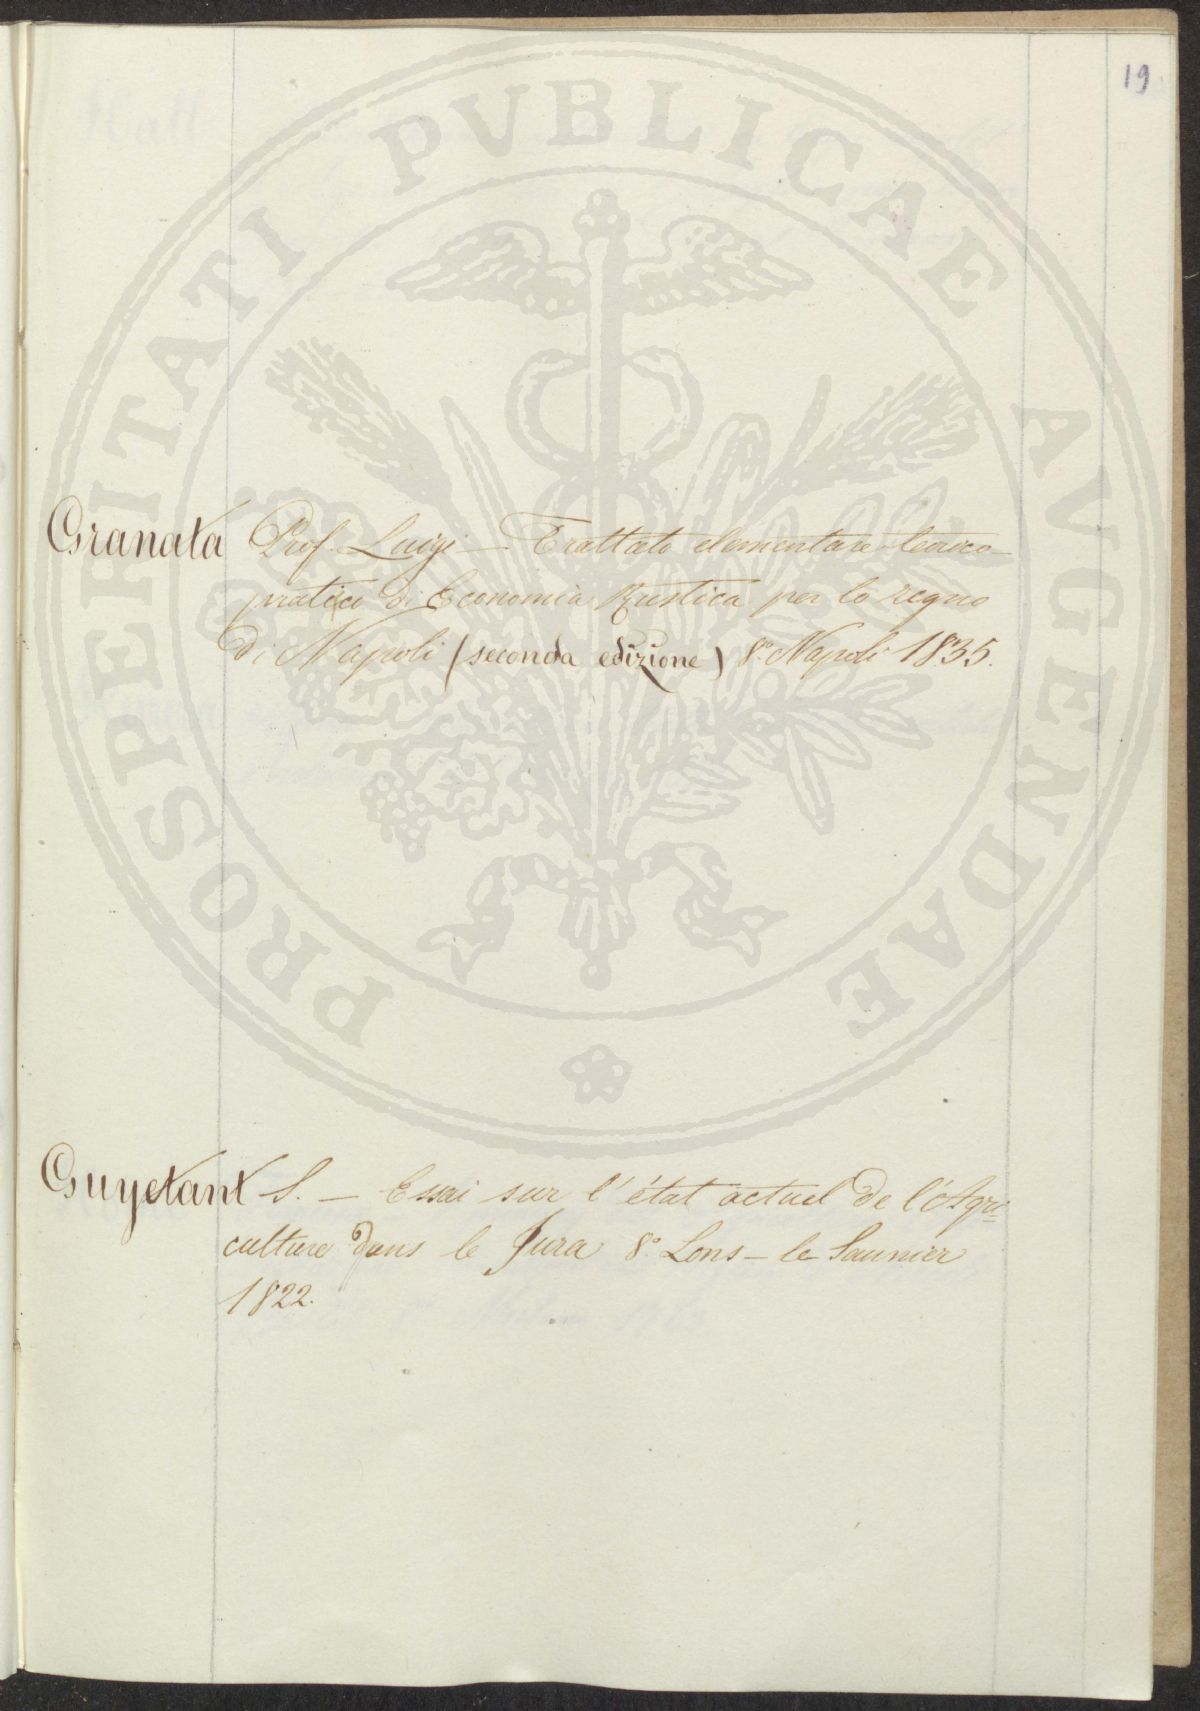 19
PROSPERITATI PVBLICAE AVGENDAE
Granata Prof. Luigi — Trattato elementare teorico-
pratico di Economia Rustica per lo regno
di Napoli (seconda edizione) 8° Napoli 1835.
Guyetant S. — Essai sur l'état actuel de l'Agri-
culture dans le Jura 8° Lons-le Saunier
1822.